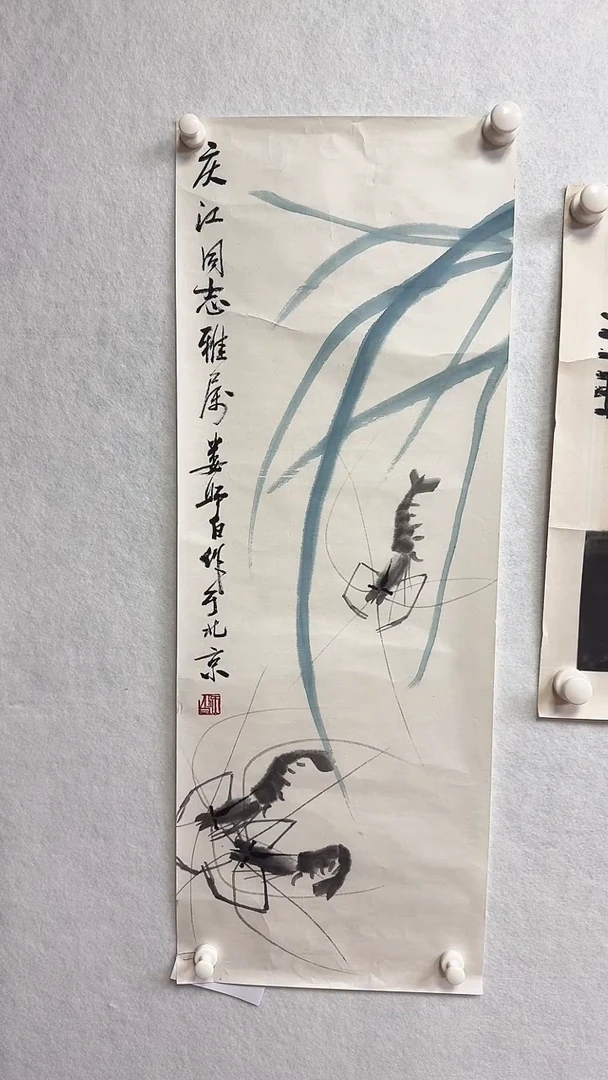 庆江同志雅属娄师白作于北京